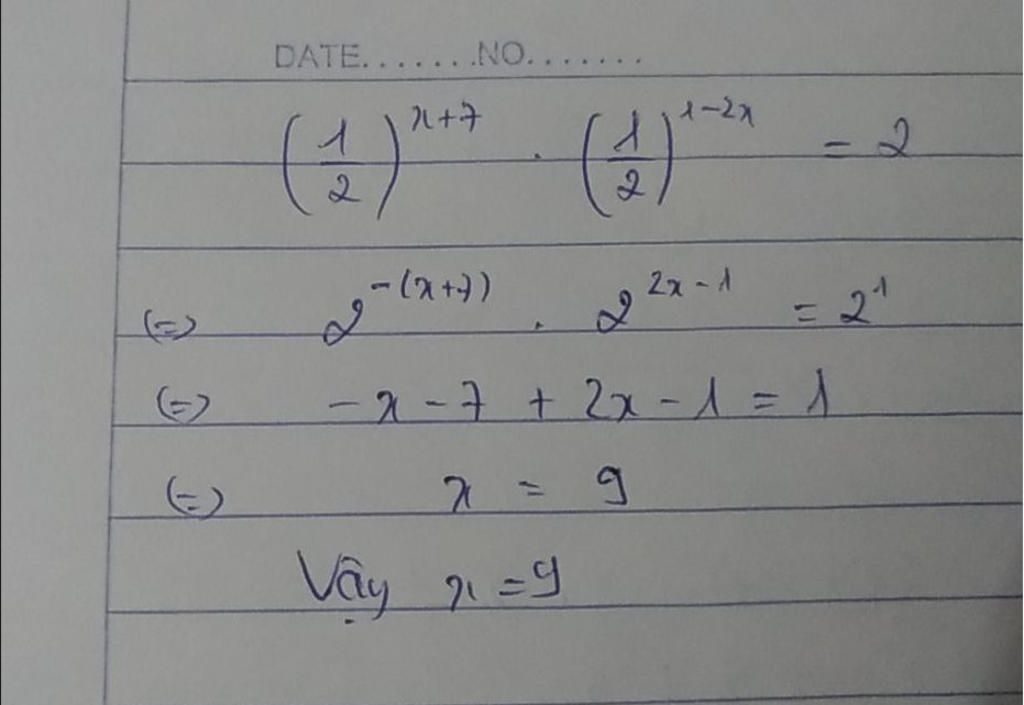 DATE.......NO.......
(1/2)^(x+7) . (1/2)^(1-2x) = 2
(=) 2^(-(x+7)) . 2^(2x-1) = 2^1
(=) -x-7 + 2x-1 = 1
(=) x = 9
Vậy x = 9